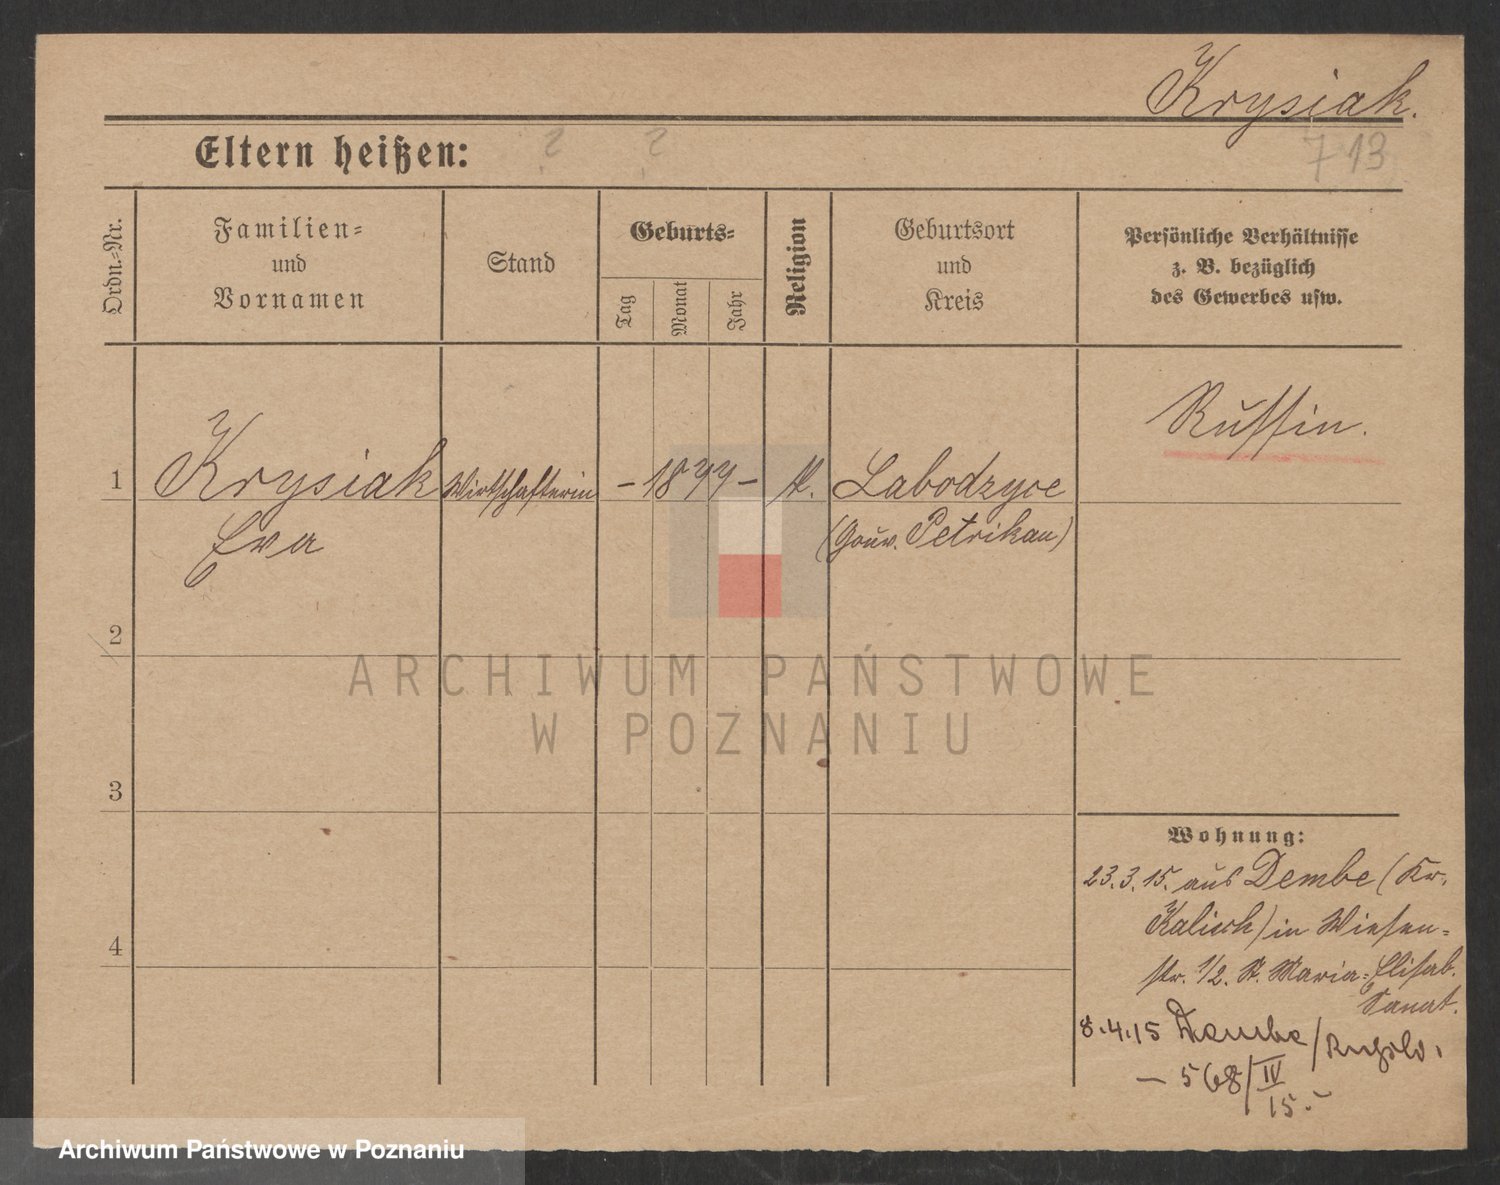 Krysiak.
Eltern heißen: ? ?
713
Ordn.-Nr.
Familien-
und
Vornamen
Stand
Geburts-
Tag
Monat
Jahr
Religion
Geburtsort
und
Kreis
Persönliche Verhältnisse
z. B. bezüglich
des Gewerbes usw.
Russin.
1 Krysiak Wirtschafterin - 1877 - k. Labodzyce
Eva (Gouv. Petrikau)
2
ARCHIWUM PAŃSTWOWE
W POZNANIU
3
Wohnung:
23.3.15. aus Dembe (Kr.
Kalisch) in Wiesen-
4
str. 1/2. St. Maria-Elisab.
Sanat.
8.4.15 Dembe/Russld.
- 568/IV
15.-
Archiwum Państwowe w Poznaniu